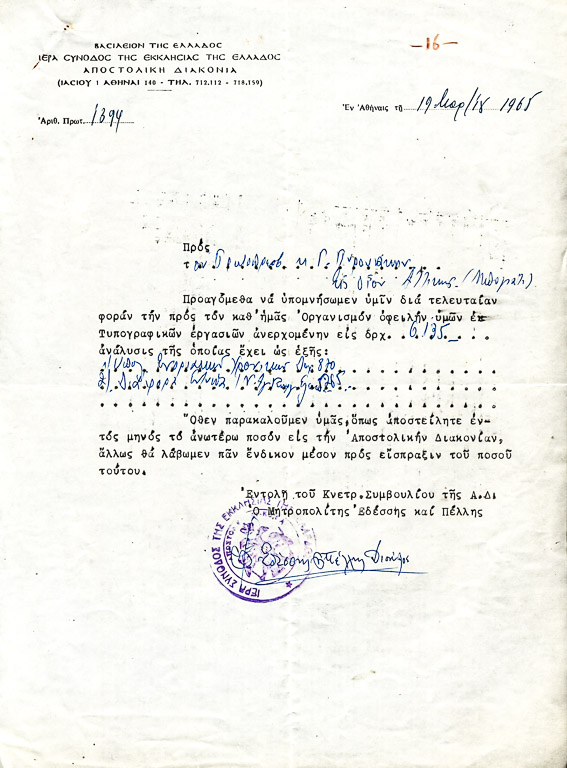 -16-
ΒΑΣΙΛΕΙΟΝ ΤΗΣ ΕΛΛΑΔΟΣ
ΙΕΡΑ ΣΥΝΟΔΟΣ ΤΗΣ ΕΚΚΛΗΣΙΑΣ ΤΗΣ ΕΛΛΑΔΟΣ
ΑΠΟΣΤΟΛΙΚΗ ΔΙΑΚΟΝΙΑ
(ΙΑΣΙΟΥ 1 ΑΘΗΝΑΙ 140 - ΤΗΛ. 712.112 - 718.159)
Ἀριθ. Πρωτ. 1394
Ἐν Ἀθήναις τῇ 19 Μαρ/ίου 1965
Πρός
τον
Προαγόμεθα νά ὑπομνήσωμεν ὑμῖν διά τελευταίαν
φοράν τήν πρός τόν καθ'ἡμᾶς Ὀργανισμόν ὀφειλήν ὑμῶν ἐκ
Τυπογραφικῶν ἐργασιῶν ἀνερχομένην εἰς δρχ. 6.135.
ἀνάλυσις τῆς ὁποίας ἔχει ὡς ἑξῆς:
870
2) Διάφορα 5265
Ὅθεν παρακαλοῦμεν ὑμᾶς, ὅπως ἀποστείλητε ἐν-
τός μηνός τό ἀνωτέρω ποσόν εἰς τήν Ἀποστολικήν Διακονίαν,
ἄλλως θά λάβωμεν πᾶν ἔνδικον μέσον πρός εἴσπραξιν τοῦ ποσοῦ
τούτου.
Ἐντολῇ τοῦ Κνετρ. Συμβουλίου τῆς Α.Δι
Ὁ Μητροπολίτης Ἐδέσσης καί Πέλλης
ΙΕΡΑ ΣΥΝΟΔΟΣ ΤΗΣ ΕΚΚΛΗΣΙΑΣ